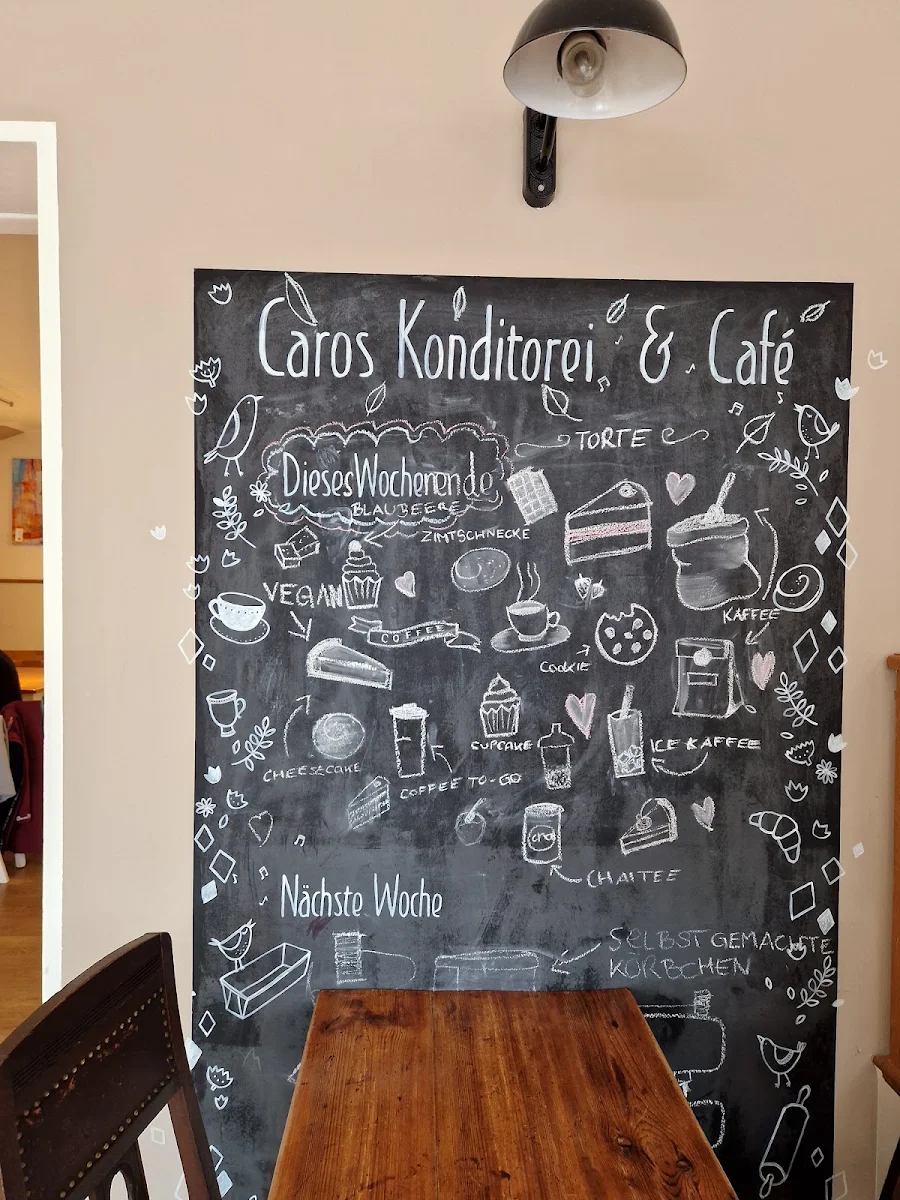 Caros Konditorei & Café
TORTE
Dieses Wochenende
BLAUBEERE
ZIMTSCHNECKE
VEGAN
COFFEE
KAFFEE
COOKIE
CUPCAKE
ICE KAFFEE
CHEESECAKE
COFFEE TO-GO
chai
CHAITEE
Nächste Woche
SELBSTGEMACHTE
KÖRBCHEN